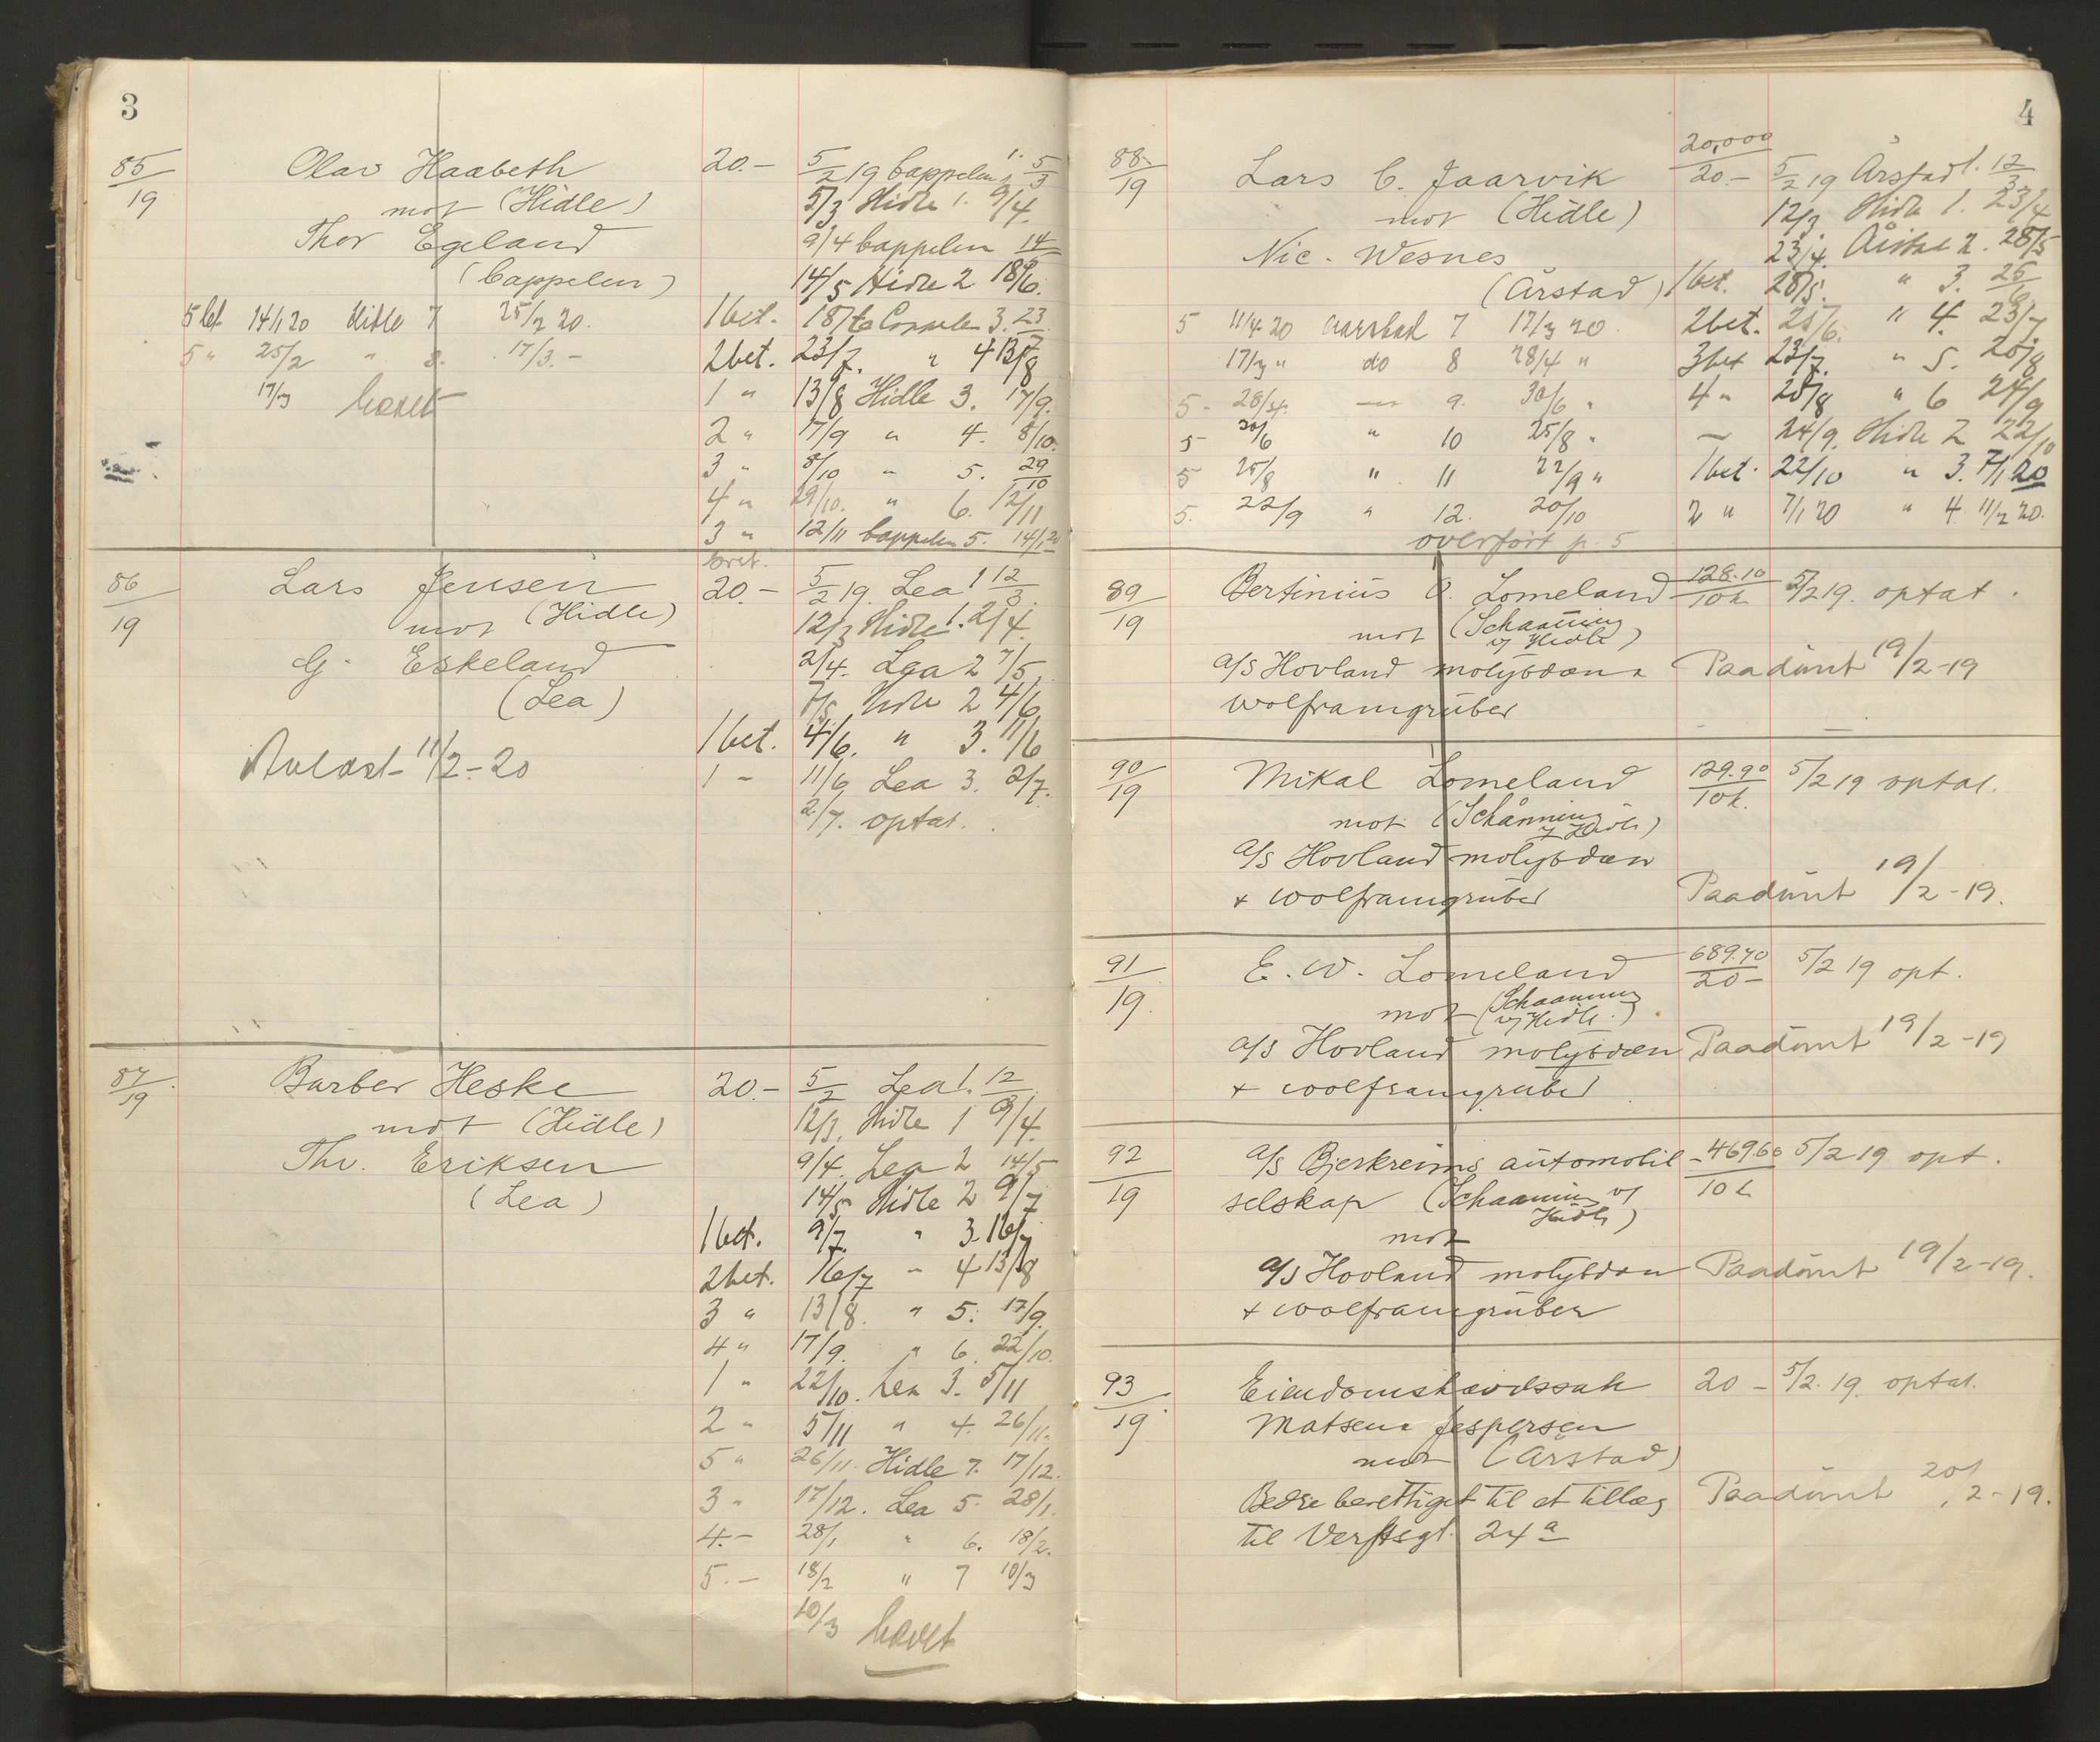 3
85/19 Olav Haabeth 20.- 5/2 19 Cappelen 1. 5/3
mot (Hidle) 5/3 Hidle 1. 9/4.
Thor Egeland 9/4 Cappelen 14/5
(Cappelen) 14/5 Hidle 2 18/6.
5 bet 14/1 20 Hidle 7 25/2 20. 1 bet. 18/6 Cappelen 3. 23/7
5 " 25/2 " 8. 17/3. - 2 bet. 23/7. " 4 13/8
17/3 hævet 1 " 13/8 Hidle 3. 17/9.
2 " 17/9 " 4. 8/10.
3 " 8/10 " 5. 29/10
4 " 29/10. " 6. 12/11
3 " 12/11 Cappelen 5. 14/1 20
86/19 Lars Jensen 20.- 5/2 19. Lea 1 12/3.
mot (Hidle) 12/3 Hidle 1. 2/4.
G. Eskeland 2/4. Lea 2 7/5
(Lea) 7/5 Hidle 2 4/6
1 bet. 4/6. " 3. 11/6
Avlæst 11/2-20 1 - 11/6 Lea 3. 2/7.
2/7. optat.
87/19 Barber Heske 20.- 5/2 Lea 1. 12/3
mot (Hidle) 12/3. Hidle 1 9/4.
Thv. Eriksen 9/4. Lea 2 14/5
(Lea) 14/5 Hidle 2 9/7
1 bet. 9/7. " 3. 16/7
2 bet. 16/7 " 4 13/8
3 " 13/8. " 5. 17/9.
4 " 17/9. " 6. 22/10.
1 " 22/10. Lea 3. 5/11
2 " 5/11 " 4. 26/11.
5 " 26/11. Hidle 7. 17/12.
3 " 17/12. Lea 5. 28/1.
4.- 28/1 " 6. 18/2.
5.- 18/2 " 7 10/3
10/3 hævet
4
20,000
88/19 Lars C. Jaarvik 20.- 5/2 19 Årstad 1. 12/3
mot (Hidle) 12/3 Hidle 1. 23/4
Nic. Wesnes 23/4. Årstad 2. 28/5
(Årstad) 1 bet. 28/5. " 3. 25/6
5 11/2 20 Aarstad 7 17/3 20. 2 bet. 25/6. " 4. 23/7
17/3 " do 8 28/4 " 3 bet 23/7. " 5. 20/8
5- 28/4. 9. 30/6 " 4 " 20/8 " 6 24/9
5- 30/6 " 10 25/8 " - 24/9. Hidle 2 22/10
5 25/8 " 11 22/9 " 1 bet. 22/10 " 3. 7/1 20
5. 22/9 " 12. 20/10 2 " 7/1 20 " 4 11/2 20.
overført p. 5
89/19 Bertinius O. Lomeland 128.10/10k 5/2 19. optat.
mot (Schaaning v/ Hidle)
A/S Hovland molybdæn & Paadømt 19/2-19
wolframgruber
90/19 Mikal Lomeland 129.90/10k. 5/2 19 optat.
mot (Schånning v/ Hidle)
A/S Hovland molybdæn
+ wolframgruber Paadømt 19/2-19.
91/19. E. W. Lomeland 689.70/20- 5/2 19 opt.
mot (Schaanning v/ Hidle.)
A/S Hovland molybdæn Paadømt 19/2-19
+ wolframgruber
92/19 A/S Bjerkreims automobil- 469.60/10k 5/2 19 opt.
selskap (Schaanning v/ Hidle)
mot
A/S Hovland molybdæn Paadømt 19/2-19.
+ wolframgruber
93/19 Eiendomshævdssak 20 - 5/2. 19. optat.
Matsen & Jespersen
mot (Årstad)
Bedre berettiget til et tillæg Paadømt 20/2-19.
til Verftsgt. 24 a